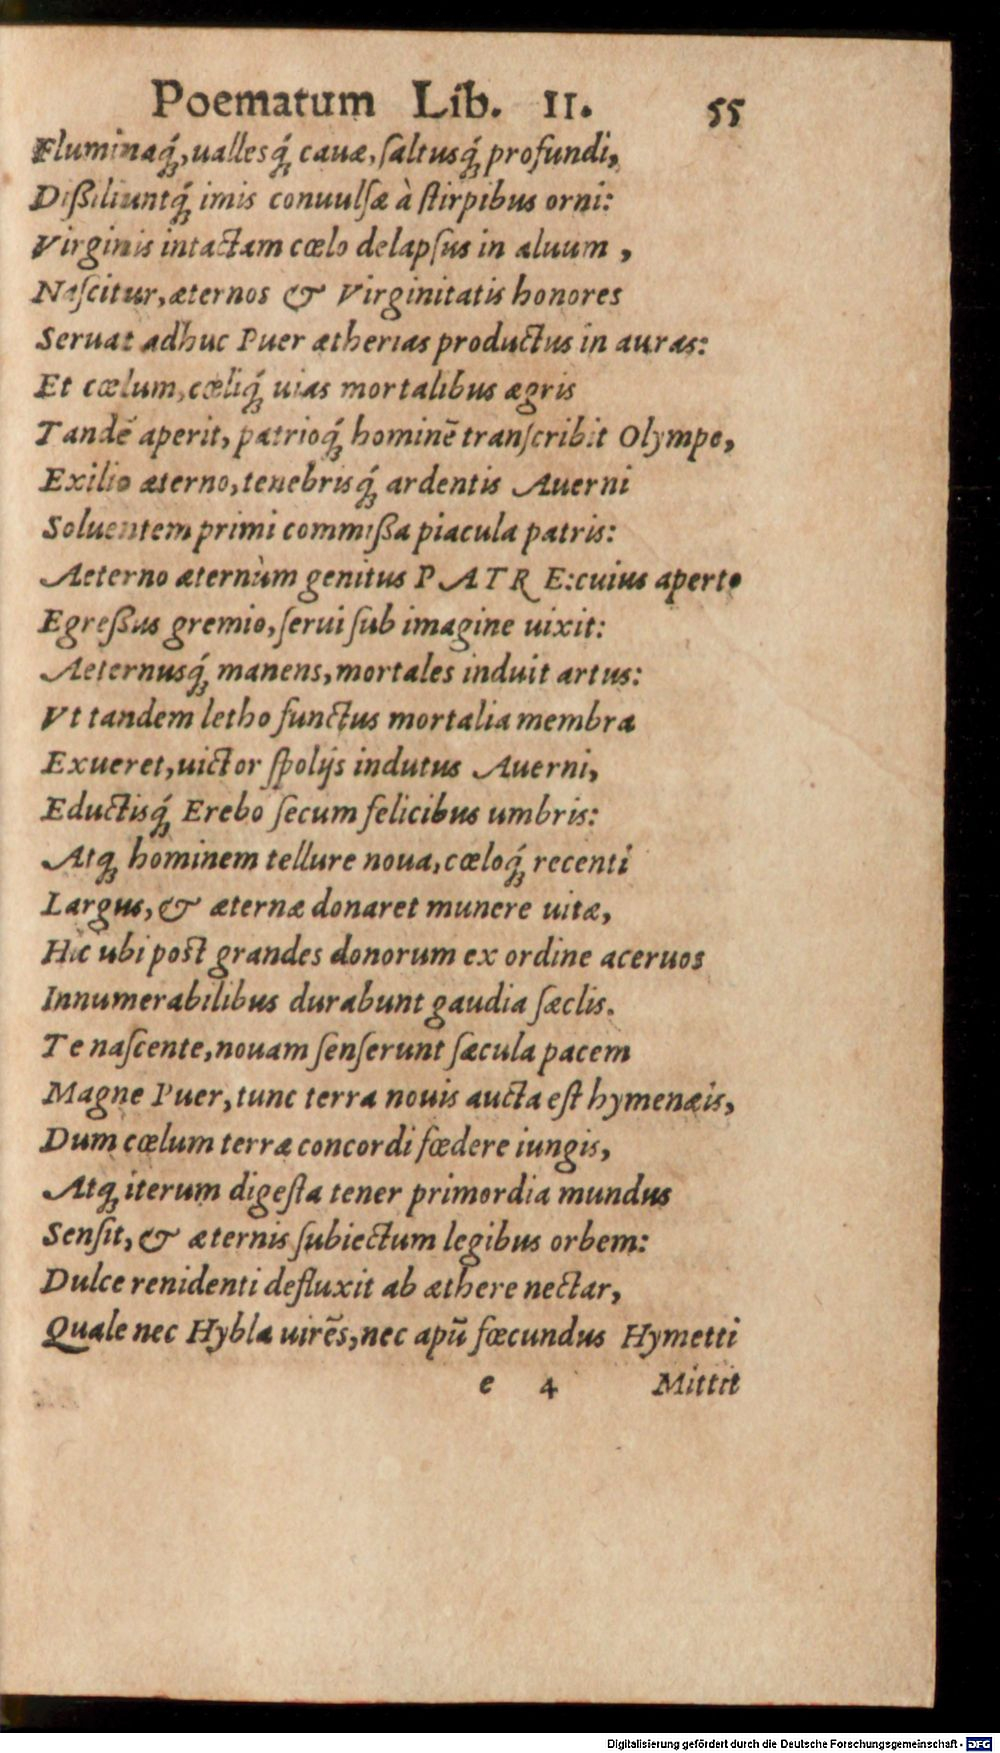 Poematum Lib. II. 55
Fluminaq́;, uallesq́; cauæ, ſaltusq́; profundi,
Dißiliuntq́; imis conuulſæ à ſtirpibus orni:
Virginis intactam cœlo delapſus in aluum,
Naſcitur, æternos & Virginitatis honores
Seruat adhuc Puer ætherias productus in auras:
Et cœlum, cœliq́; uias mortalibus ægris
Tandē aperit, patrioq́; hominē tranſcribit Olympo,
Exilio æterno, tenebrisq́; ardentis Auerni
Soluentem primi commißa piacula patris:
Aeterno æternùm genitus PATRE: cuius aperto
Egreßus gremio, ſerui ſub imagine uixit:
Aeternusq́; manens, mortales induit artus:
Vt tandem letho functus mortalia membra
Exueret, uictor ſpolijs indutus Auerni,
Eductisq́; Erebo ſecum felicibus umbris:
Atq; hominem tellure noua, cœloq́; recenti
Largus, & æternæ donaret munere uitæ,
Hic ubi poſt grandes donorum ex ordine aceruos
Innumerabilibus durabunt gaudia ſæclis.
Te naſcente, nouam ſenſerunt ſæcula pacem
Magne Puer, tunc terra nouis aucta eſt hymenæis,
Dum cœlum terræ concordi fœdere iungis,
Atq; iterum digeſta tener primordia mundus
Senſit, & æternis ſubiectum legibus orbem:
Dulce renidenti defluxit ab æthere nectar,
Quale nec Hybla uirēs, nec apū fœcundus Hymetti
e 4 Mittit
Digitalisierung gefördert durch die Deutsche Forschungsgemeinschaft - DFG